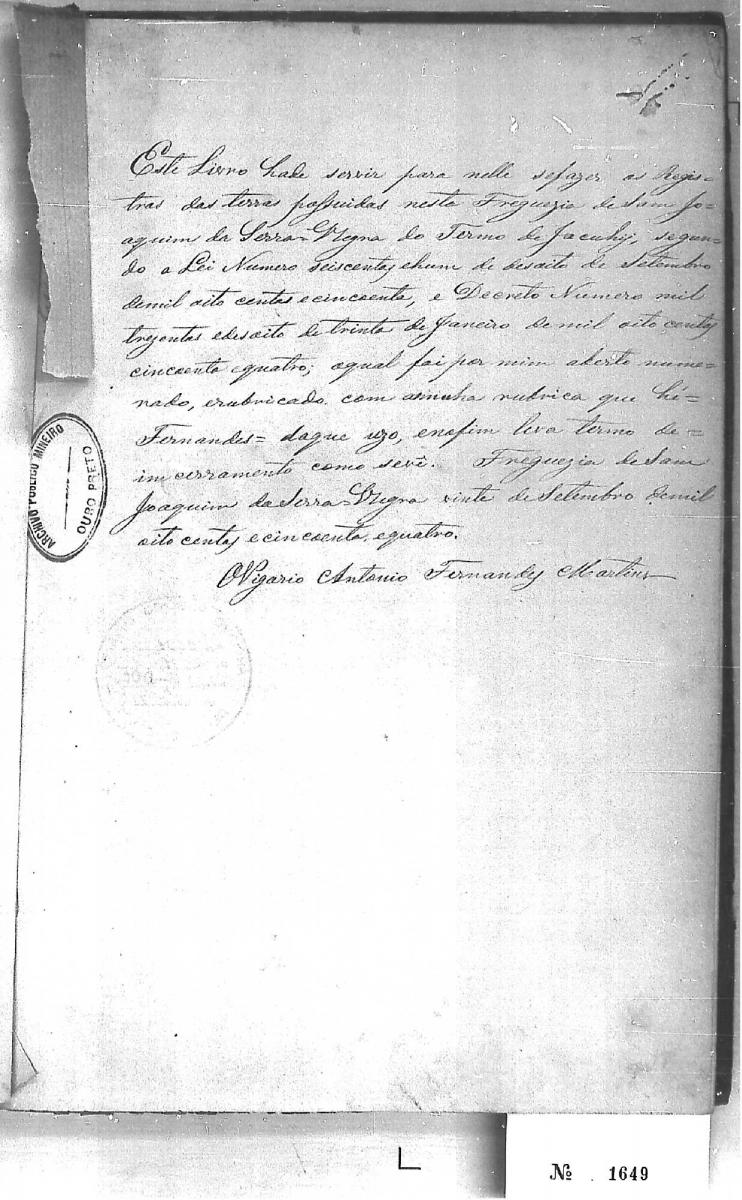 Este Livro hade servir para nelle sefazer os Regis=
tros das terras possuidas nesta Freguezia de Sam Jo=
aquim da Serra=Negra do Termo de Jacuhÿ, segun=
do a Lei Numero seiscentos ehum de desoito de Setembro
demil oito centos e cincoenta, e Decreto Numero mil
trezentos edesoito de trinta de Janeiro de mil oito centos
cincoenta equatro; oqual foi por mim aberto nume=
rado, erubricado com aminha rubrica que hé=
Fernandes= daque uzo, enofim leva termo de=
imcerramento como sevê. Freguezia de Sam
Joaquim da Serra=Negra vinte de Setembro demil
oito centos e cincoenta, equatro.
OVigario Antonio Fernandes Martins
ARCHIVO PUBLICO MINEIRO
OURO PRETO
Nº 1649